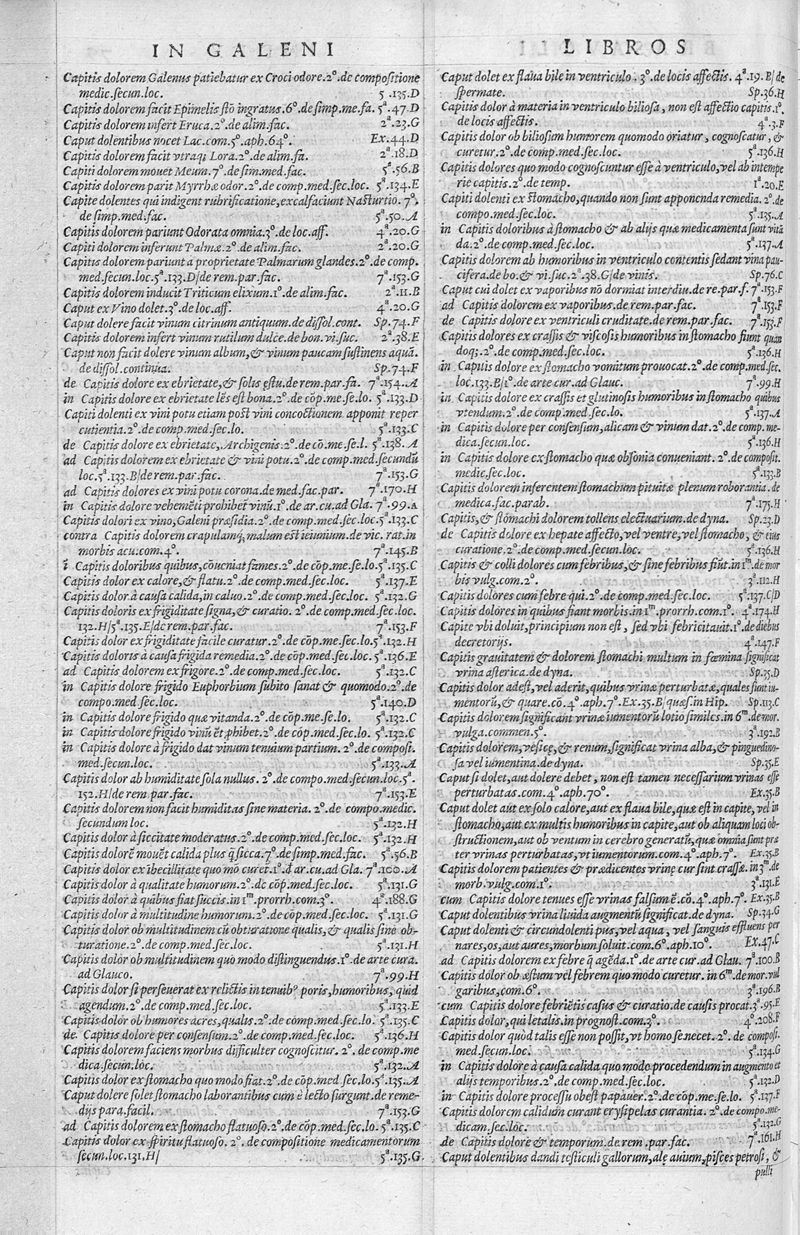 IN GALENI
Capitis dolorem Galenus patiebatur ex Croci odore.2°.de compositione
medic.secun.loc. 5.135.D
Capitis dolorem facit Epimelis stõ ingratus.6°.de simp.me.fa. 5ª.47.D
Capitis dolorem infert Eruca.2°.de alim.fac. 2ª.23.G
Caput dolentibus nocet Lac.com.5ª.aph.64°. Ex.44.D
Capitis dolorem facit vtraq; Lora.2°.de alim.fa. 2ª.18.D
Capiti dolorem mouet Meum.7°.de sim.med.fac. 5ª.56.B
Capitis dolorem parit Myrrhæ odor.2°.de comp.med.sec.loc. 5ª.134.E
Capite dolentes qui indigent rubrificatione,excalfaciunt Nasturtio.7°.
de simp.med.fac. 5ª.50.A
Capitis dolorem pariunt Odorata omnia.3°.de loc.aff. 4ª.20.G
Capiti dolorem inferunt Palmæ.2°.de alim.fac. 2ª.20.G
Capitis dolorem pariunt a proprietate Palmarum glandes.2°.de comp.
med.secun.loc.5ª.133.D/de rem.par.fac. 7ª.153.G
Capitis dolorem inducit Triticum elixum.1°.de alim.fac. 2ª.11.B
Caput ex Vino dolet.3°.de loc.aff. 4ª.20.G
Caput dolere facit vinum citrinum antiquum.de dissol.cont. Sp.74.F
Capitis dolorem infert vinum rutilum dulce.de bon.vi.suc. 2ª.38.E
Caput non facit dolere vinum album,& vinum paucam sustinens aquã.
de dissol.continua. Sp.74.F
de Capitis dolore ex ebrietate,& solis estu.de rem.par.fa. 7ª.154.A
in Capitis dolore ex ebrietate lẽs est bona.2°.de cõp.me.se.lo. 5ª.133.D
Capiti dolenti ex vini potu etiam post vini concoctionem apponit reper
cutientia.2°.de comp.med.sec.lo. 5ª.133.C
de Capitis dolore ex ebrietate,Archigenis.2°.de cõ.me.se.l. 5ª.138.A
ad Capitis dolorem ex ebrietate & vini potu.2°.de comp.med.secundũ
loc.5ª.133.B/de rem.par.fac. 7ª.153.G
ad Capitis dolores ex vini potu corona.de med.fac.par. 7ª.170.H
in Capitis dolore vehemẽti prohibet vinũ.1°.de ar.cu.ad Gla. 7ª.99.A
Capitis dolori ex vino,Galeni præsidia.2°.de comp.med.sec.loc.5ª.133.C
contra Capitis dolorem crapulamq;malum est ieiunium.de vic.rat.in
morbis acu.com.4°. 7ª.145.B
ĩ Capitis doloribus quibus,cõueniat fames.2°.de cõp.me.se.lo.5ª.135.C
Capitis dolor ex calore,& flatu.2°.de comp.med.sec.loc. 5ª.137.E
Capitis dolor à causa calida,in caluo.2°.de comp.med.sec.loc. 5ª.132.G
Capitis doloris ex frigiditate signa,& curatio.2°.de comp.med.sec.loc.
132.H/5ª.135.E/de rem.par.fac. 7ª.153.F
Capitis dolor ex frigiditate facile curatur.2°.de cõp.me.se.lo.5ª.132.H
Capitis doloris à causa frigida remedia.2°.de cõp.med.sec.loc. 5ª.136.E
ad Capitis dolorem ex frigore.2°.de comp.med.sec.loc. 5ª.132.C
in Capitis dolore frigido Euphorbium subito sanat & quomodo.2°.de
compo.med.sec.loc. 5ª.140.D
in Capitis dolore frigido quæ vitanda.2°.de cõp.me.se.lo. 5ª.132.C
in Capitis dolore frigido vinũ ẽt phibet.2°.de cõp.med.sec.lo. 5ª.132.C
in Capitis dolore à frigido dat vinum tenuium partium.2°.de compost.
med.sec.loc. 5ª.133.A
Capitis dolor ab humiditate sola nullus.2°.de compo.med.secun.loc.5ª.
152.H/de rem par.fac. 7ª.153.E
Capitis dolorem non facit humiditas sine materia.2°.de compo.medic.
secundum loc. 5ª.132.H
Capitis dolor à siccitate moderatus.2°.de comp.med.sec.loc. 5ª.132.H
Capitis dolorẽ mouẽt calida plus q̃ sicca.7°.de simp.med.fac. 5ª.56.B
Capitis dolor ex ibecillitate quo mõ curet̃.1°.d ar.cu.ad Gla. 7ª.100.A
Capitis dolor à qualitate humorum.2°.de comp.med.sec.loc. 5ª.131.G
Capitis dolor à quibus fiat succis.in 1ᵐ.prorrh.com.3°. 4ª.188.G
Capitis dolor à multitudine humorum.2°.de comp.med.sec.loc. 5ª.131.G
Capitis dolor ob multitudinem cũ obturatione qualis,& qualis sine ob-
turatione.2°.de comp.med.sec.loc. 5ª.131.H
Capitis dolor ob multitudinem quo modo distinguendus.1°.de arte cura.
ad Glauco. 7ª.99.H
Capitis dolor si perseuerat ex relictis in tenuib° poris,humoribus, quid
agendum.2°.de comp.med.sec.loc. 5ª.133.E
Capitis dolor ob humores acres,qualis.2°.de comp.med.sec.lo. 5ª.135.C
de Capitis dolore per consensum.2°.de comp.med.sec.loc. 5ª.136.H
Capitis dolorem faciens morbus difficulter cognoscitur.2°.de comp.me
dica.secun.loc. 5ª.132.A
Capitis dolor ex stomacho quo modo fiat.2°.de cõp.med.sec.lo.5ª.135.A
Caput dolere solet stomacho laborantibus cum è lecto surgunt.de reme-
dijs para.facil. 7ª.153.G
ad Capitis dolorem ex stomacho flatuoso.2°.de cõp.med.sec.lo. 5ª.135.C
Capitis dolor ex spiritu flatuoso.2°.de compositione medicamentorum
secun.loc.131.H/ 5ª.135.G
LIBROS
Caput dolet ex flaua bile in ventriculo.3°.de locis affectis. 4ª.19.B/de
spermate. Sp.36.H
Capitis dolor à materia in ventriculo biliosa, non est affectio capitis.1°.
de locis affectis. 4ª.3.F
Capitis dolor ob biliosum humorem quomodo oriatur, cognoscatur, &
curetur.2°.de comp.med.sec.loc. 5ª.136.H
Capitis dolores quo modo cognoscuntur esse à ventriculo,vel ab intempe
rie capitis.2°.de temp. 1ª.20.E
Capiti dolenti ex stomacho,quando non sunt apponenda remedia.2°.de
compo.med.sec.loc. 5ª.135.A
in Capitis doloribus à stomacho & ab alijs quæ medicamenta sunt vitã
da.2°.de comp.med.sec.loc. 5ª.137.A
Capitis dolorem ab humoribus in ventriculo contentis sedant vina pau-
cifera.de bo.& vi.suc.2ª.38.G/de vinis. Sp.76.C
Caput cui dolet ex vaporibus nõ dormiat interdiu.de re.par.f. 7ª.153.F
ad Capitis dolorem ex vaporibus.de rem.par.fac. 7ª.153.F
de Capitis dolore ex ventriculi cruditate.de rem.par.fac. 7ª.153.F
Capitis dolores ex crassis & viscosis humoribus in stomacho fiunt quan
doq;.2°.de comp.med.sec.loc. 5ª.136.H
in Capitis dolore ex stomacho vomitum prouocat.2°.de comp.med.sec.
loc.133.B/1°.de arte cur.ad Glauc. 7ª.99.H
in Capitis dolore ex crassis et glutinosis humoribus in stomacho quibus
vtendum.2°.de comp.med.sec.lo. 5ª.137.A
in Capitis dolore per consensum,alicam & vinum dat.2°.de comp.me-
dica.secun.loc. 5ª.136.H
in Capitis dolore ex stomacho quæ obsonia conueniant.2°.de composit.
medic.sec.loc. 5ª.133.B
Capitis dolorem inferentem stomachum pituitæ plenum roborantia.de
medica.fac.parab. 7ª.175.H
Capitis,& stomachi dolorem tollens electuarium.de dyna. Sp.23.D
de Capitis dolore ex hepate affecto,vel ventre,vel stomacho, & eius
curatione.2°.de comp.med.secun.loc. 5ª.136.H
Capitis & colli dolores cum febribus,& sine febribus fiũt.in 1ᵐ.de mor
bis vulg.com.2°. 3ª.112.H
Capitis dolores cum febre qui.2°.de comp.med.sec.loc. 5ª.137.C/D
Capitis dolores in quibus fiant morbis.in 1ᵐ.prorrh.com.1°. 4ª.174.H
Capite vbi doluit,principium non est, sed vbi febricitauit.1°.de diebus
decretorijs. 4ª.147.F
Capitis grauitatem & dolorem stomachi multum in fœmina significat
vrina asterica.de dyna. Sp.35.D
Capitis dolor adest,vel aderit,quibus vrinæ perturbatæ,quales sunt iu-
mentorũ,& quare.cõ.4°.aph.7°.Ex.35.B/quæs.in Hip. Sp.113.C
Capitis dolorem significant vrinæ iumentorũ lotio similes.in 6ᵐ.de mor.
vulga.commen.5°. 3ª.192.B
Capitis dolorem,vesice,& renum,significat vrina alba,& pinguedino-
sa vel iumentina.de dyna. Sp.35.E
Caput si dolet,aut dolere debet, non est tamen necessarium vrinas esse
perturbatas.com.4°.aph.70°. Ex.35.B
Caput dolet aut ex solo calore,aut ex flaua bile,quæ est in capite, vel in
stomacho,aut ex multis humoribus in capite,aut ob aliquam loci ob-
structionem,aut ob ventum in cerebro generatũ,quæ omnia sunt præ
ter vrinas perturbatas,vt iumentorum.com.4°.aph.7°. Ex.35.B
Capitis dolorem patientes & prædicentes vrinę cur sint crassæ.in 3ᵐ.de
morb.vulg.com.1°. 3ª.131.E
cum Capitis dolore tenues esse vrinas falsum ẽ.cõ.4°.aph.7°. Ex.35.B
Caput dolentibus vrina liuida augmentũ significat.de dyna. Sp.34.G
Caput dolenti & circundolenti pus,vel aqua, vel sanguis effluens per
nares,os,aut aures,morbum soluit.com.6°.aph.10°. Ex.47.C
ad Capitis dolorem ex febre q̃ agẽda.1°.de arte cur.ad Glau. 7ª.100.B
Capitis dolor ob æstum vel febrem quo modo curetur.in 6ᵐ.de mor.vul
garibus,com.6°. 3ª.196.B
cum Capitis dolore febriẽtis casus & curatio.de causis procat.3ª.95.E
Capitis dolor,qui letalis.in prognost.com.3°. 4ª.208.F
Capitis dolor quòd talis esse non possit,vt homo se necet.2°.de composi.
med.secun.loc. 5ª.134.G
in Capitis dolore à causa calida quo modo procedendum in augmento et
alijs temporibus.2°.de comp.med.sec.loc. 5ª.132.D
in Capitis dolore processu obest papauer.2°.de cõp.me.se.lo. 5ª.137.F
Capitis dolorem calidum curant erysipelas curantia.2°.de compo.me-
dicam.sec.loc. 5ª.132.G
de Capitis dolore & temporum.de rem.par.fac. 7ª.161.H
Caput dolentibus dandi testiculi gallorum,ale auium,pisces petrosi, &
pulli